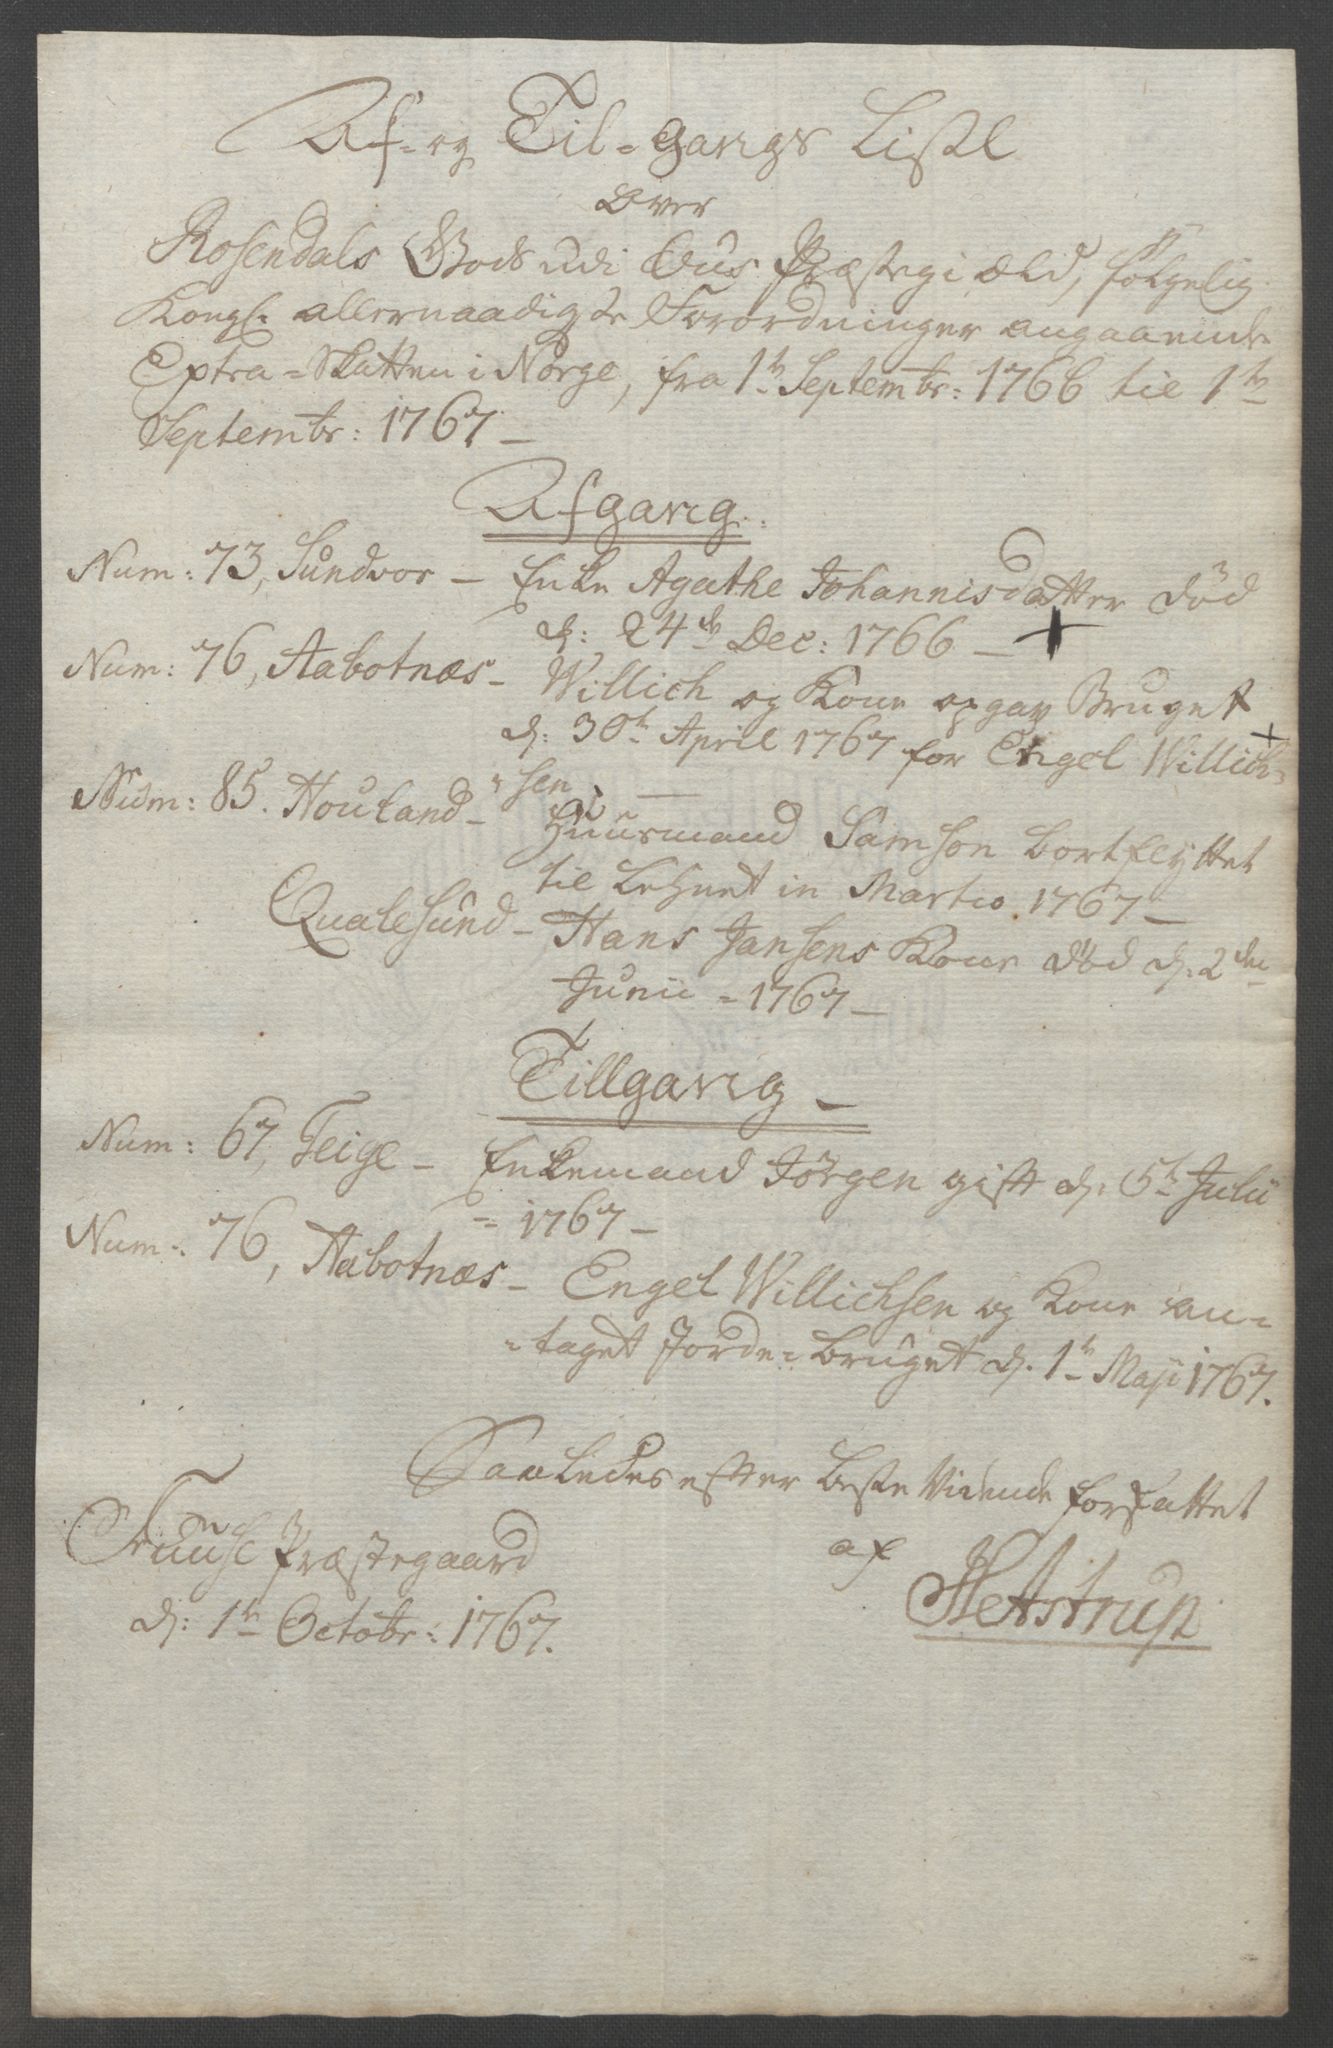 Af- og Til-gangs Liste
over
Rosendals Gods udi Ous Præstegiæld, følgelig
Kongl. allernaadigste Forordninger angaaende
Extra-Skatten i Norge, fra 1te Septembr: 1766 til 1te
Septembr: 1767 –
Afgang:
Num: 73, Sundvor – Enke Agathe Johannisdatter død
d: 24de Dec: 1766 – +
Num: 76, Aabotnæs – Willich og Kone opgav Bruget +
d: 30te April 1767 for Engel Willich-
-sen –
Num: 85. Houland – Huusmand Samson bortflyttet
til Lehnet in Martio 1767 –
Qualesund – Hans Jansens Kone død d: 2den
Junii - 1767 –
Tillgang –
Num: 67, Teige – Enkemand Jörgen gift d: 5te Julii
- 1767 –
Num: 76, Aabotnæs – Engel Willichsen og Kone an-
-taget Jorde-bruget d. 1te Maji 1767.
Saaledes efter beste Vidende forfattet
af
Fuuse Præstegaard
d: 1te Octobr: 1767.
Hetstrup